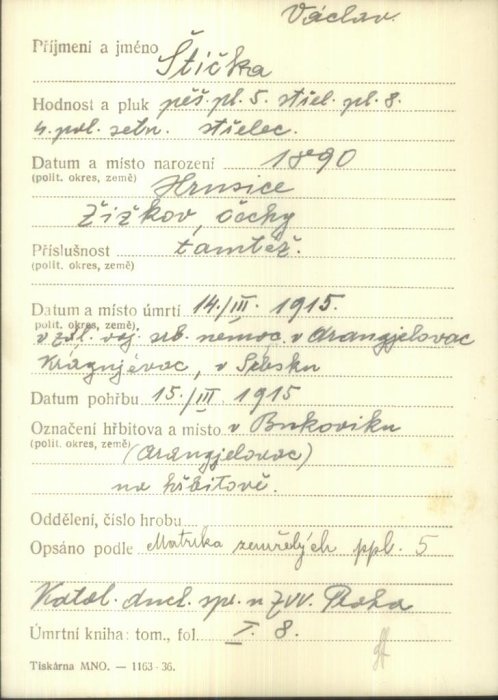 Václav.
Příjmení a jméno Štička
Hodnost a pluk pěš. pl. 5. střel. pl. 8.
4. pol. setn. střelec.
Datum a místo narození 1890
(polit. okres, země) Hrusice
Žižkov, Čechy
Příslušnost tamtéž.
(polit. okres, země)
Datum a místo úmrtí 14./III. 1915.
(polit. okres, země)
v zál. voj. srb. nemoc. v Arangjelovac
Kragujevac, v Srbsku
Datum pohřbu 15./III 1915
Označení hřbitova a místo v Bukoviku
(polit. okres, země) (Arangjelovac)
na hřbitově.
Oddělení, číslo hrobu
Opsáno podle Matrika zemřelých ppl. 5
Katol. duch. spr. u ZVV. Praha
Úmrtní kniha: tom., fol. I. 8.
Tiskárna MNO. — 1163-36.